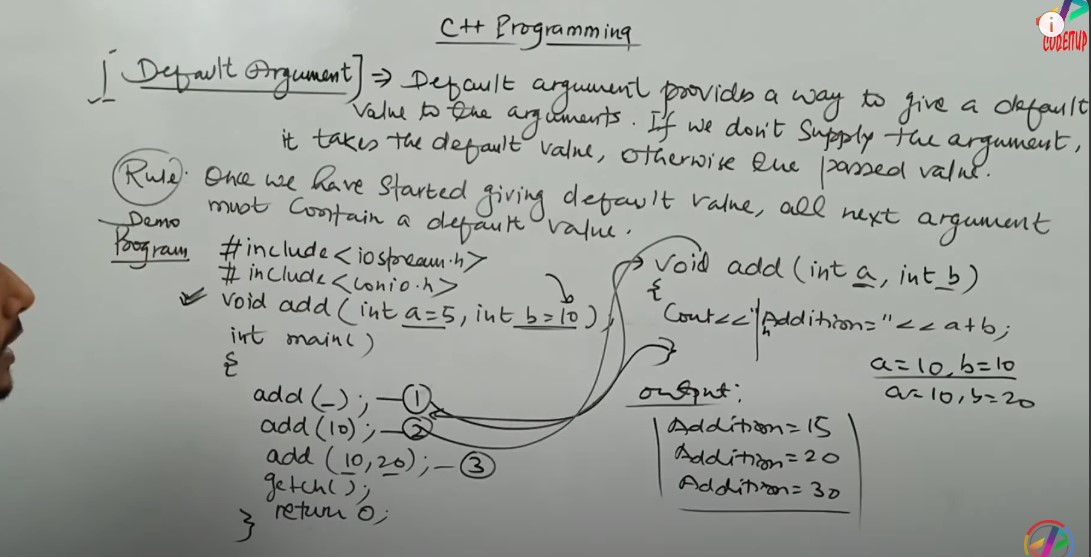 C++ Programming
CODEITUP
[Default Argument] ⇒ Default argument provides a way to give a default
value to the arguments. If we don't supply the argument,
it takes the default value, otherwise the passed value.
Rule: Once we have started giving default value, all next argument
must contain a default value.
Demo
Program
#include<iostream.h>
#include<conio.h>
void add(int a=5, int b=10);
int main()
{
add(_); — 1
add(10); — 2
add (10,20); — 3
getch();
return 0;
}
void add (int a, int b)
{
Cout<<"\n Addition="<<a+b;
}
a=10, b=10
a=10, b=20
output:
Addition=15
Addition=20
Addition=30